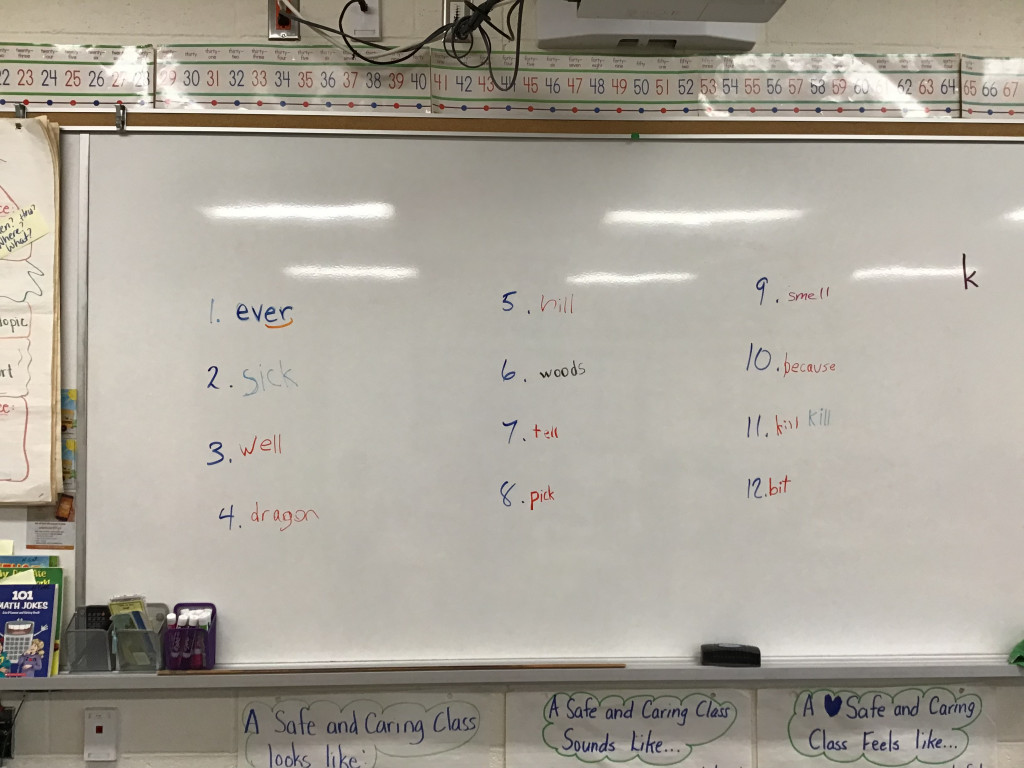 22 23 24 25 26 27 28 29 30 31 32 33 34 35 36 37 38 39 40 41 42 43 45 46 47 48 49 50 51 52 53 54 55 56 57 58 59 60 61 62 63 64 65 66 67
Where?
What?
k
1. ever
2. sick
3. well
4. dragon
5. hill
6. woods
7. tell
8. pick
9. smell
10. because
11. kill kill
12. bit
101
MATH JOKES
A Safe and Caring Class
looks like:
A Safe and Caring Class
Sounds Like...
A ♥ Safe and Caring
Class Feels like...